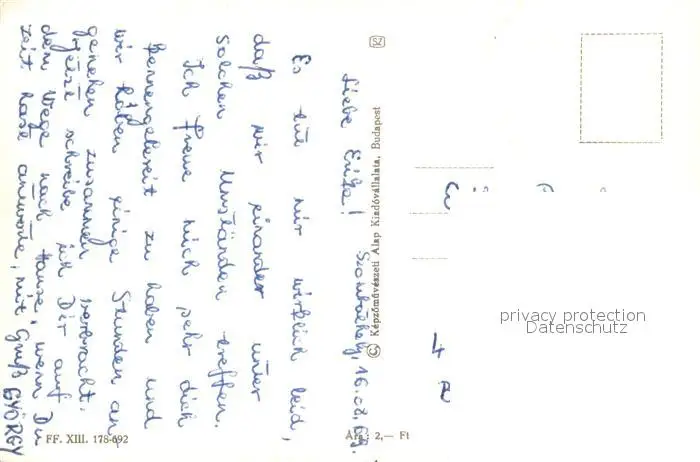 Liebe Erika! Szombathely, 16.08.69.
Es tut mir wirklich leid,
daß wir einander unter
solchen Umständen treffen.
Ich freue mich sehr dich
kennengelernt zu haben und
wir haben einige Stunden an-
genehm zusammen verbracht.
Jetzt schreibe ich Dir auf
dem Wege nach Hause, wenn Du
Zeit hast antworte, mit Gruß GYÖRGY
FF. XIII. 178-692
© Képzőművészeti Alap Kiadóvállalata, Budapest
SZ
Ára: 2,— Ft
privacy protection
Datenschutz